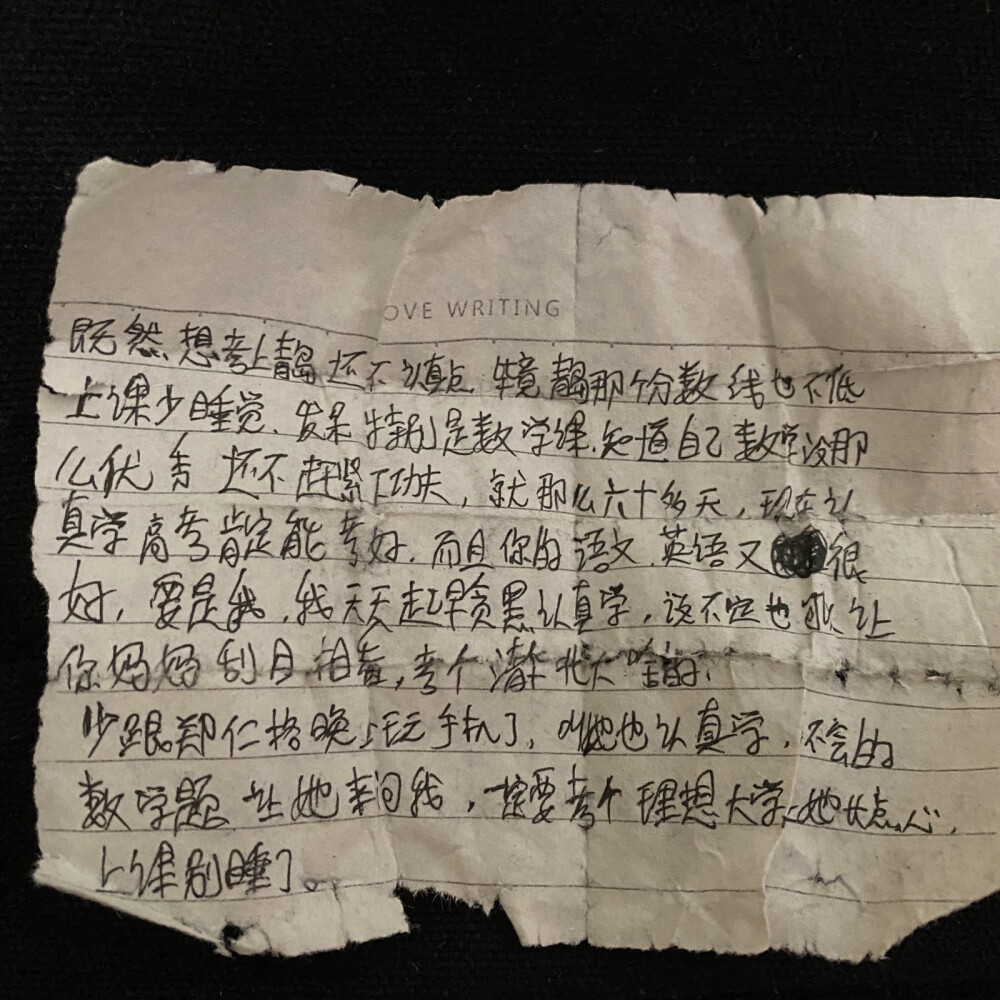 OVE WRITING
既然想考上青岛还不认真点 毕竟青岛那个分数线也不低
上课少睡觉、发呆 特别是数学课.知道自己数学没那
么优秀 还不赶紧下功夫，就那么六十多天，现在认
真学高考肯定能考好.而且你的语文.英语又很
好，要是我，我天天起早贪黑认真学，说不定也能让
你妈妈刮目相看，考个清华北大啥的.
少跟郑仁格晚上玩手机了，叫她也认真学，不会的
数学题 让她来问我，一定要考个理想大学、她长点心，
上课别睡了。